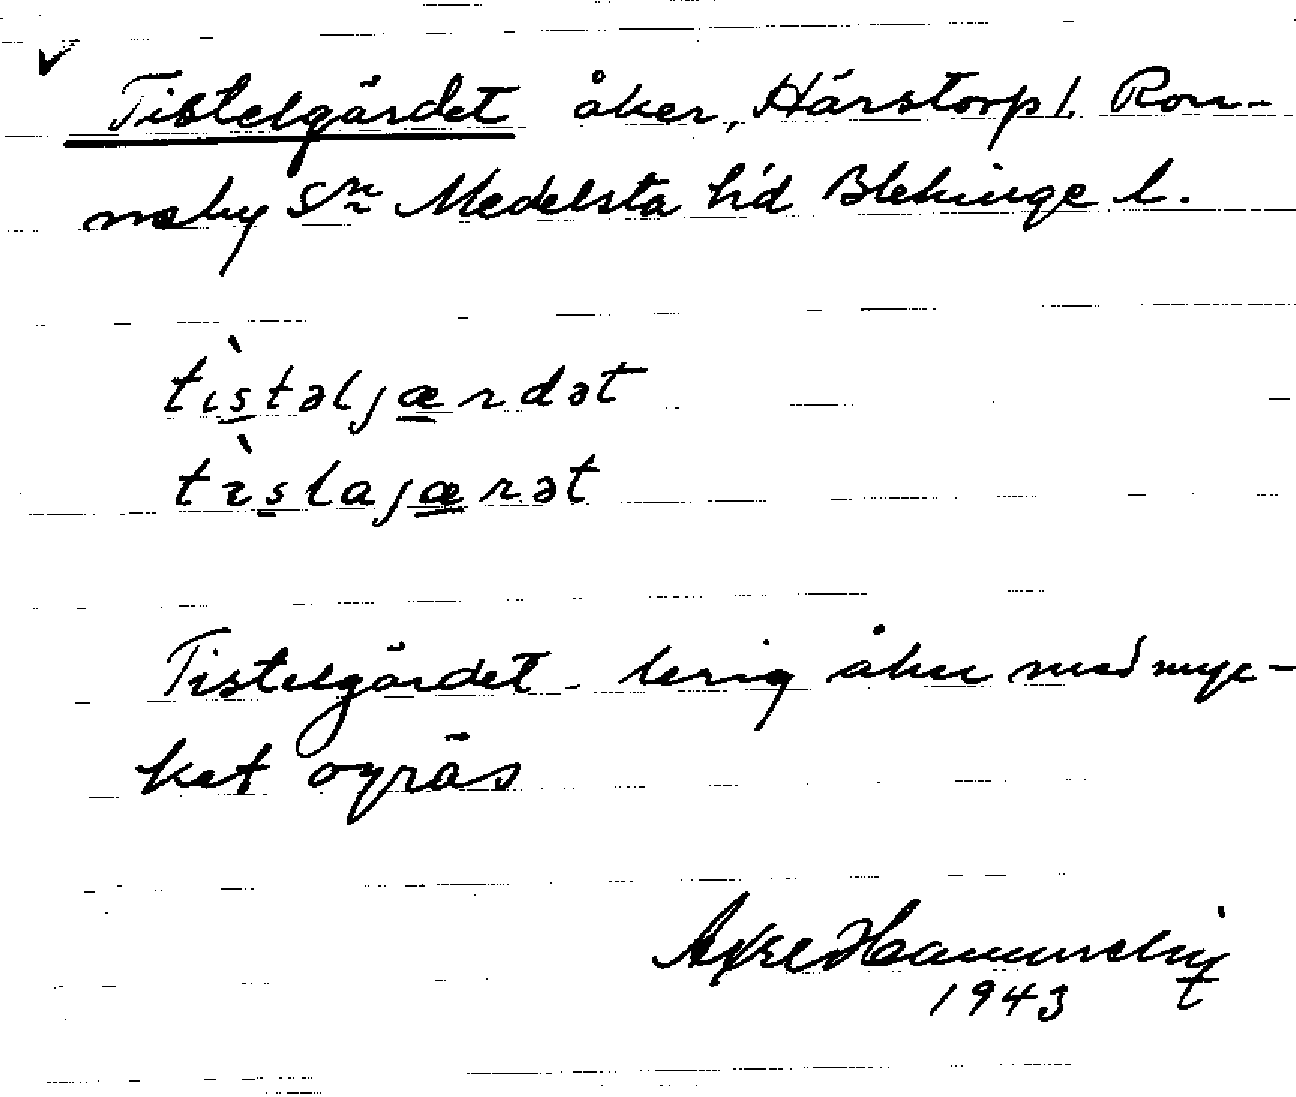 Tistelgärdet åker, Härstorp 1. Ron-
neby Sn Medelsta hd Blekinge l.
tìstəljærdət
tìslajærət
Tistelgärdet lerig åker med myc-
ket ogräs
Axel
1943